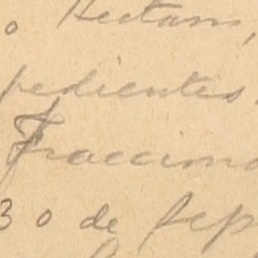 o Hectar
pedientes
Fraccion
30 de Sep